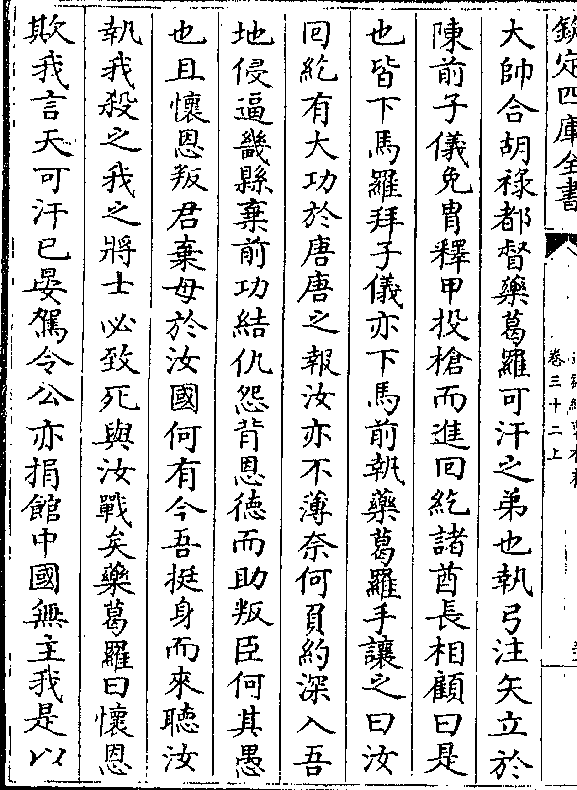 欽定四庫全書
卷三十二上
大帥合胡祿都督藥葛羅可汗之弟也執弓注矢立於
陳前子儀免胄釋甲投槍而進回紇諸酋長相顧曰是
也皆下馬羅拜子儀亦下馬前執藥葛羅手讓之曰汝
回紇有大功於唐唐之報汝亦不薄奈何負約深入吾
地侵逼畿縣棄前功結仇怨背恩徳而助叛臣何其愚
也且懷恩叛君棄母於汝國何有今吾挺身而來聽汝
執我殺之我之將士必致死與汝戰矣藥葛羅曰懷恩
欺我言天可汗已晏駕令公亦捐館中國無主我是以